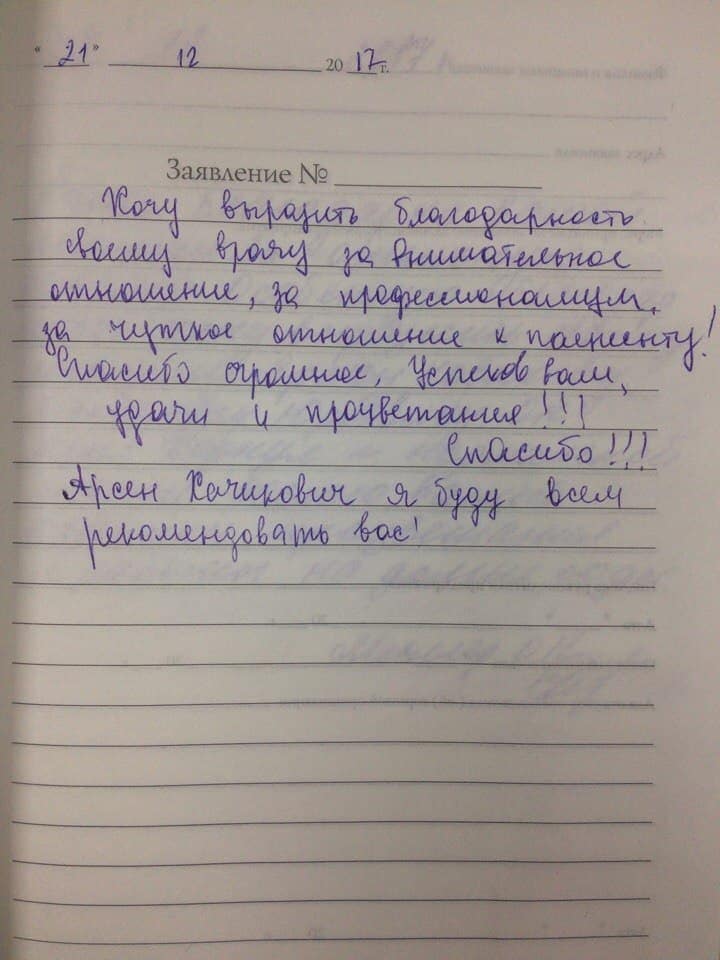 "21" 12 2017 г.
Заявление №
Хочу выразить благодарность
своему врачу за внимательное
отношение, за профессионализм,
за чуткое отношение к пациенту!
Спасибо огромное, Успехов вам,
удачи и процветания!!!
Спасибо!!!
Арсен Хачикович я буду всем
рекомендовать вас!